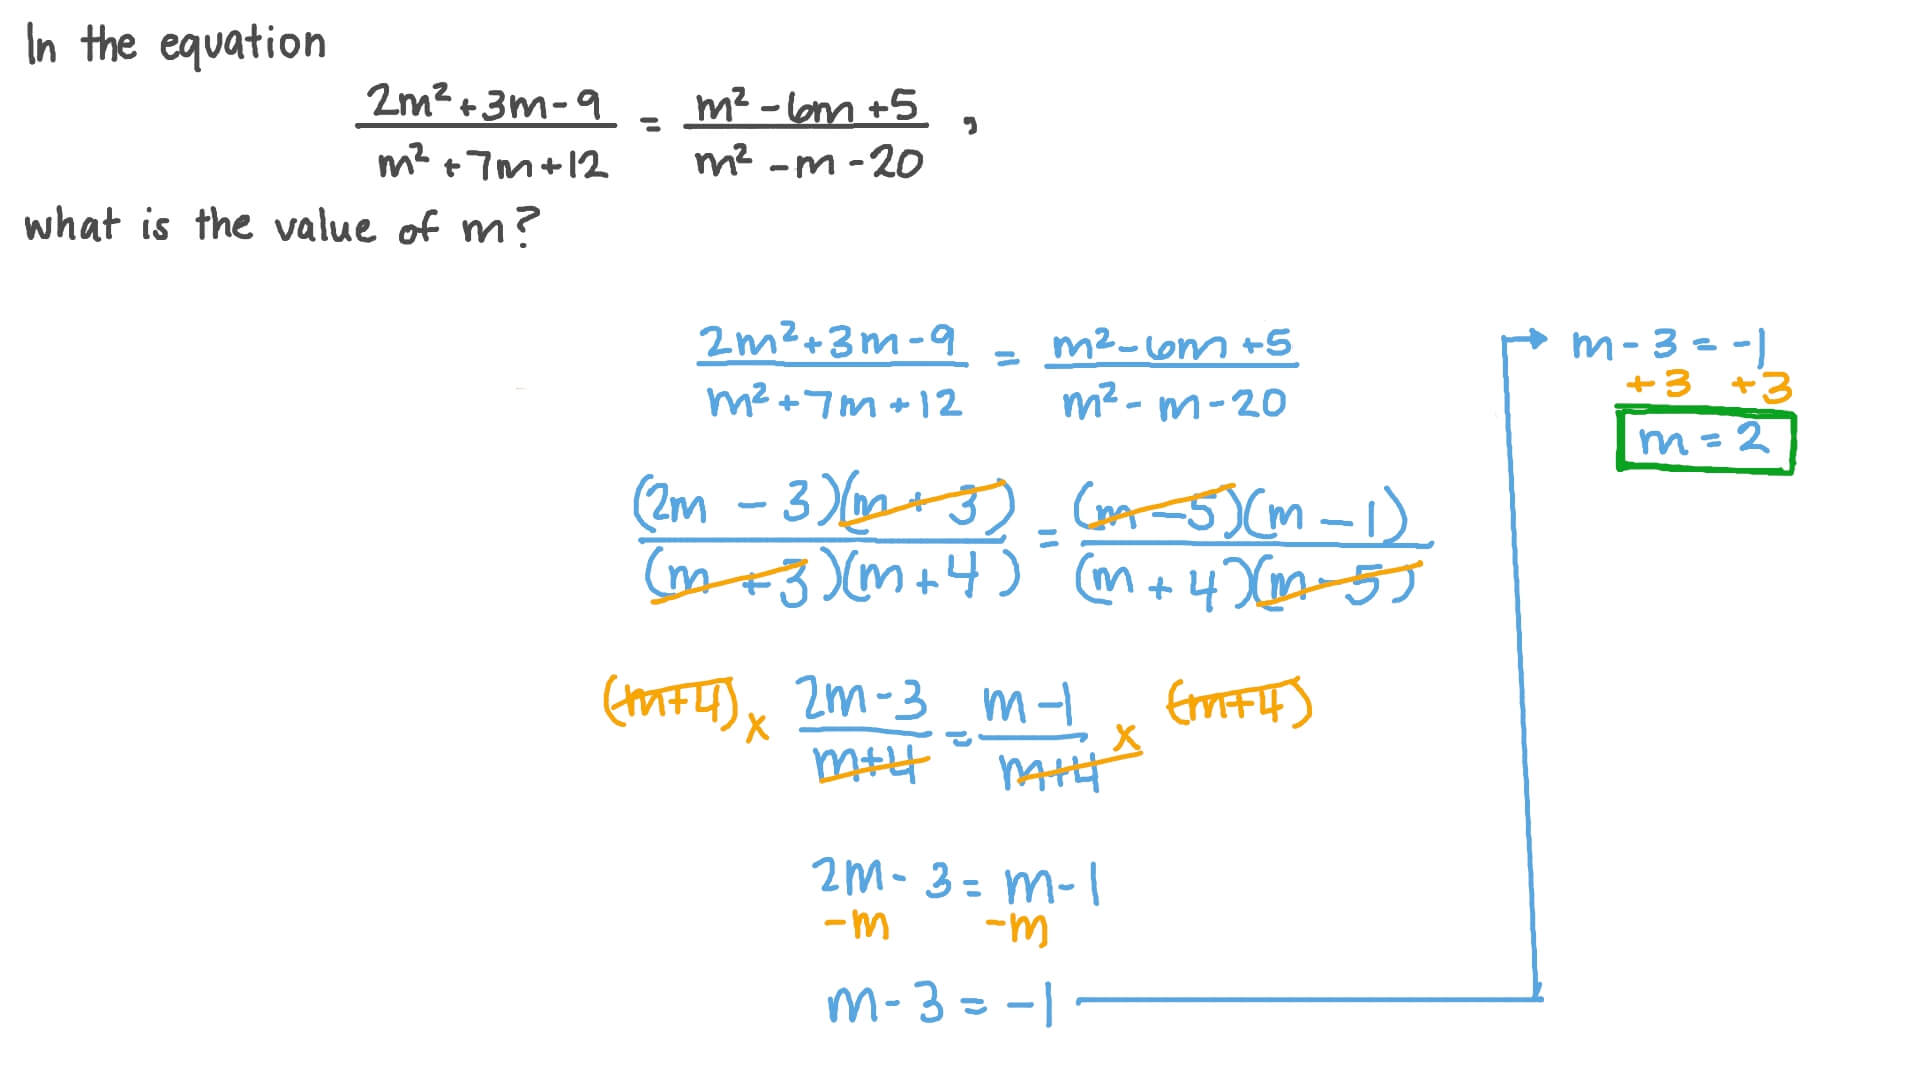 In the equation
2m²+3m-9 / m²+7m+12 = m²-6m+5 / m²-m-20 ,
what is the value of m?
2m²+3m-9 / m²+7m+12 = m²-6m+5 / m²-m-20
(2m-3)(m+3) / (m+3)(m+4) = (m-5)(m-1) / (m+4)(m-5)
(m+4) x 2m-3 / m+4 = m-1 / m+4 x (m+4)
2m-3=m-1
-m -m
m-3=-1
m-3=-1
+3 +3
m=2